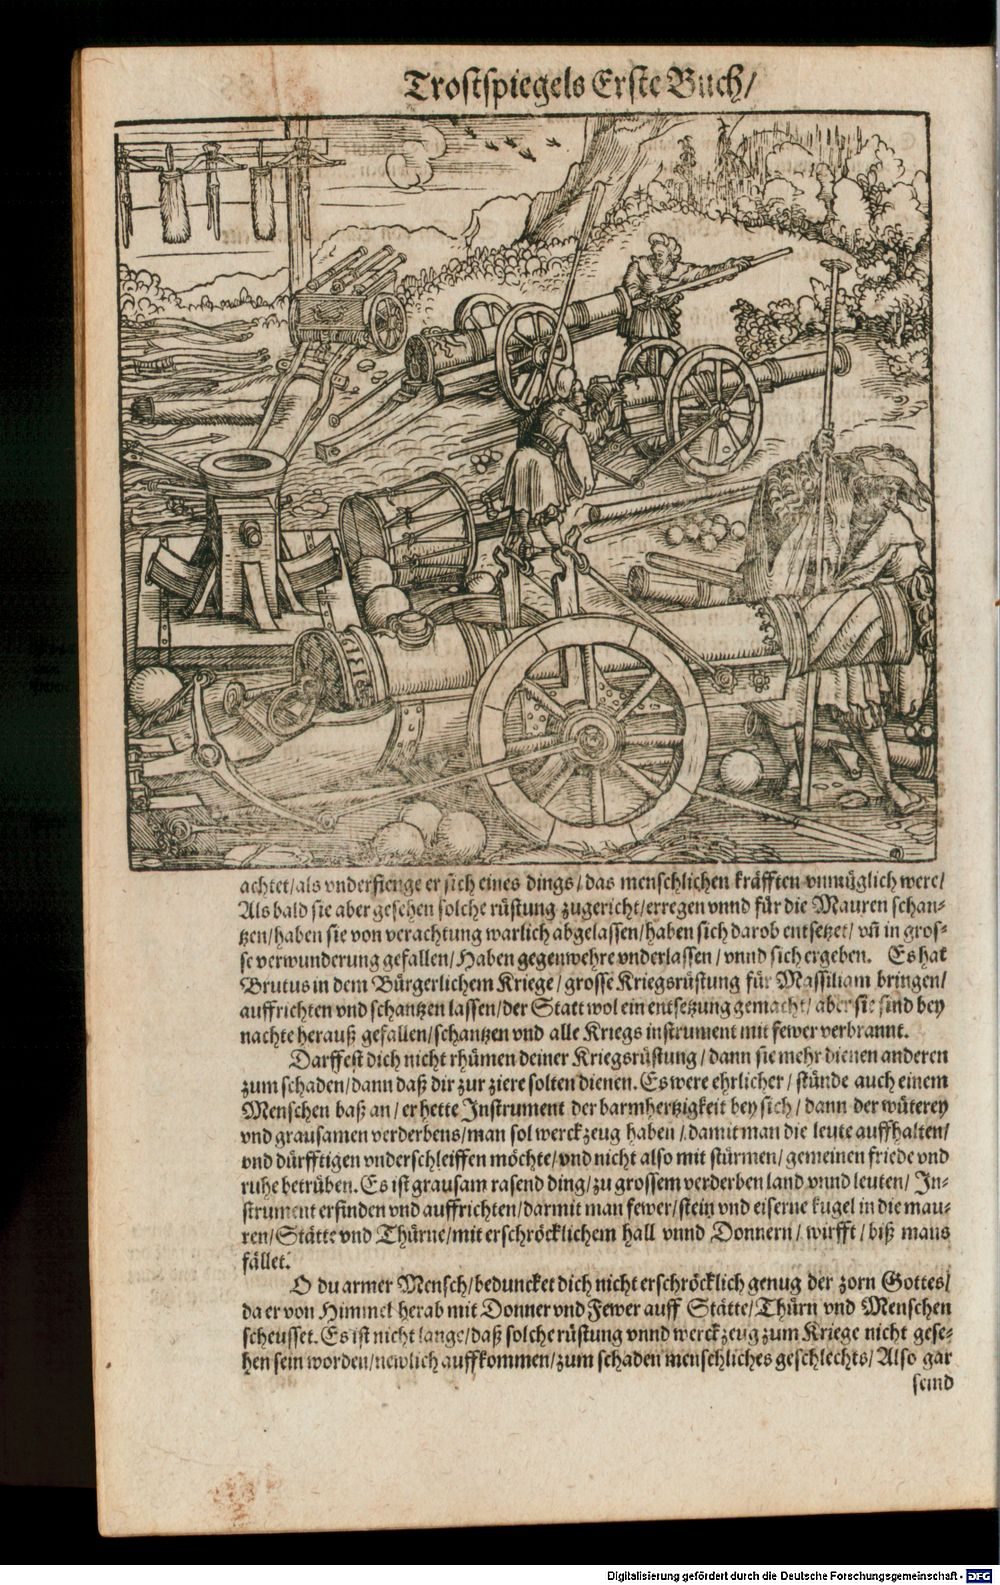 Trostspiegels Erste Buch/
achtet/als vnderfienge er sich eines dings/das menschlichen kräfften vnmüglich were/
Als bald sie aber gesehen solche rüstung zugericht/erregen vnnd für die Mauren schan-
tzen/haben sie von verachtung warlich abgelassen/haben sich darob entsetzet/ vñ in gros-
se verwunderung gefallen/Haben gegenwehre vnderlassen/vnnd sich ergeben. Es hat
Brutus in dem Bürgerlichem Kriege/grosse Kriegsrüstung für Massiliam bringen/
auffrichten vnd schantzen lassen/der Statt wol ein entsetzung gemacht/aber sie sind bey
nachte herauß gefallen/schantzen vnd alle Kriegs instrument mit fewer verbrannt.
Darffest dich nicht rhümen deiner Kriegsrüstung/dann sie mehr dienen anderen
zum schaden/dann daß dir zur ziere solten dienen. Es were ehrlicher/stünde auch einem
Menschen baß an/er hette Instrument der barmhertzigkeit bey sich/dann der wüterey
vnd grausamen verderbens/man sol werckzeug haben/damit man die leute auffhalten/
vnd dürfftigen vnderschleiffen möchte/vnd nicht also mit stürmen/gemeinen friede vnd
ruhe betrüben. Es ist grausam rasend ding/zu grossem verderben land vnnd leuten/In-
strument erfinden vnd auffrichten/darmit man fewer/stein vnd eiserne kugel in die mau-
ren/Stätte vnd Thürne/mit erschröcklichem hall vnnd Donnern/wirfft/biß mans
fället.
O du armer Mensch/beduncket dich nicht erschröcklich genug der zorn Gottes/
da er von Himmel herab mit Donner vnd Fewer auff Stätte/Thürn vnd Menschen
scheusset. Es ist nicht lange/daß solche rüstung vnnd werckzeug zum Kriege nicht gese-
hen sein worden/newlich auffkommen/zum schaden menschliches geschlechts/Also gar
seind
Digitalisierung gefördert durch die Deutsche Forschungsgemeinschaft - DFG